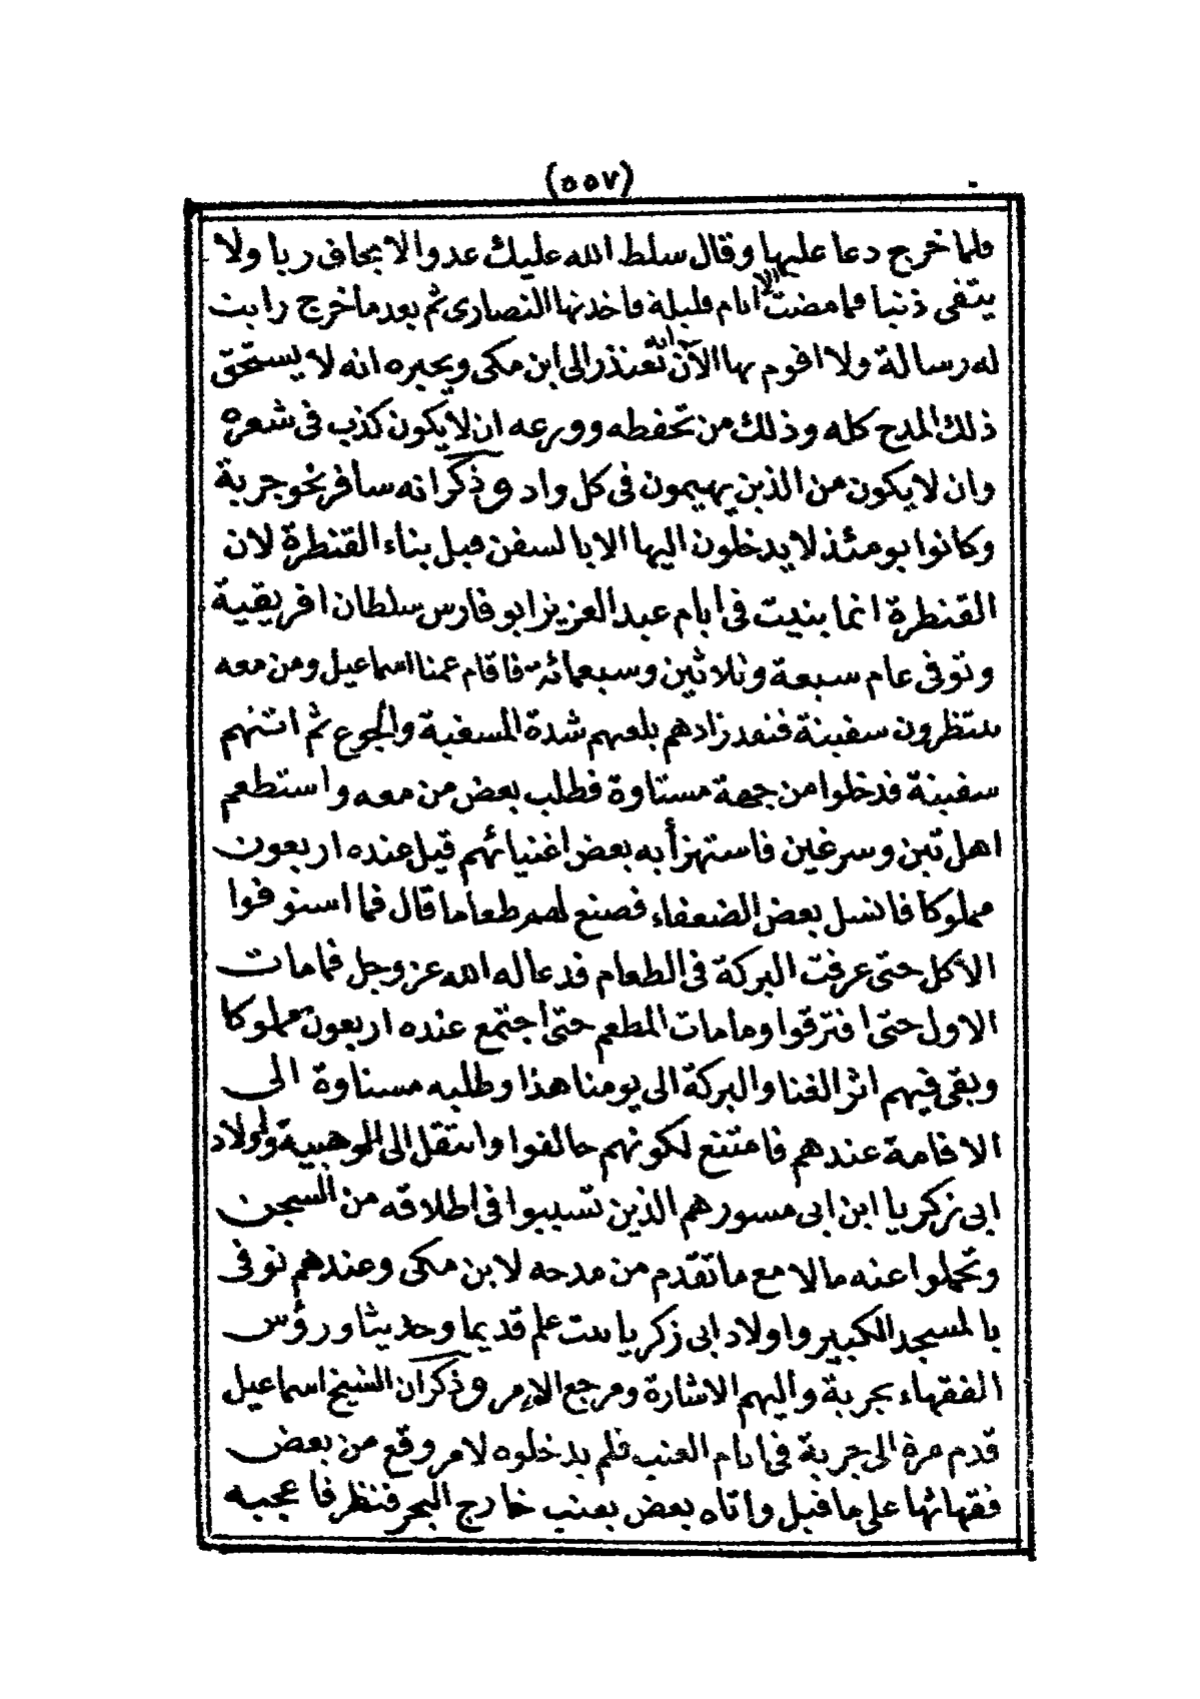 (٥٥٧)
فلما خرج دعا عليها وقال سلط الله عليك عدوا لا يخاف ربا ولا
يتقى ذنبا فما مضت الا ايام قليلة فاخذتها النصارى ثم بعد ما خرج رايت
له رسالة ولا اقوم بها الآن انه تعتذر الى ابن مكى ويخبره انه لا يستحق
ذلك المدح كله وذلك من تحفظه وورعه ان لا يكون كذب فى شعره
وان لا يكون من الذين يهيمون فى كل واد وذكر انه سافر نحو جربة
وكانوا يومئذ لا يدخلون اليها الا بالسفن قبل بناء القنطرة لان
القنطرة انما بنيت فى ايام عبد العزيز ابو فارس سلطان افريقيية
وتوفى عام سبعة وثلاثين وسبعمائة فاقام عمنا اسماعيل ومن معه
ينتظرون سفينة فنفد زادهم بلغهم شدة المسغبة والجوع ثم اتتهم
سفينة فدخلوا من جهة مستاوة فطلب بعض من معه واستطعم
اهل تين وسرغين فاستهزأ به بعض اغنيائهم قيل عنده اربعون
مملوكا فانسل بعض الضعفاء فصنع لهم طعاما قال فما استوفوا
الأكل حتى عرفت البركة فى الطعام فدعا له الله عز وجل فما مات
الاول حتى افترقوا وما مات المطعم حتى اجتمع عنده اربعون مملوكا
وبقى فيهم اثر الغنا والبركة الى يومنا هذا وطلبه مستاوة الى
الاقامة عندهم فامتنع لكونهم خالفوا وانتقل الى الموهبية واولاد
ابى زكريا ابن ابى مسور هم الذين تسببوا فى اطلاقه من السجن
وتحملوا عنه مالا مع ما تقدم من مدحه لابن مكى وعندهم توفى
بالمسجد الكبير واولاد ابى زكريا بيت علم قديما وحديثا ورؤس
الفقهاء بجربة واليهم الاشارة ومرجع الامر وذكر ان الشيخ اسماعيل
قدم مرة الى جربة فى ايام العنب فلم يدخلوه لامر وقع من بعض
فقهائها على ما قيل واتاه بعض بعنب خارج البحر فنظر فاعجبه